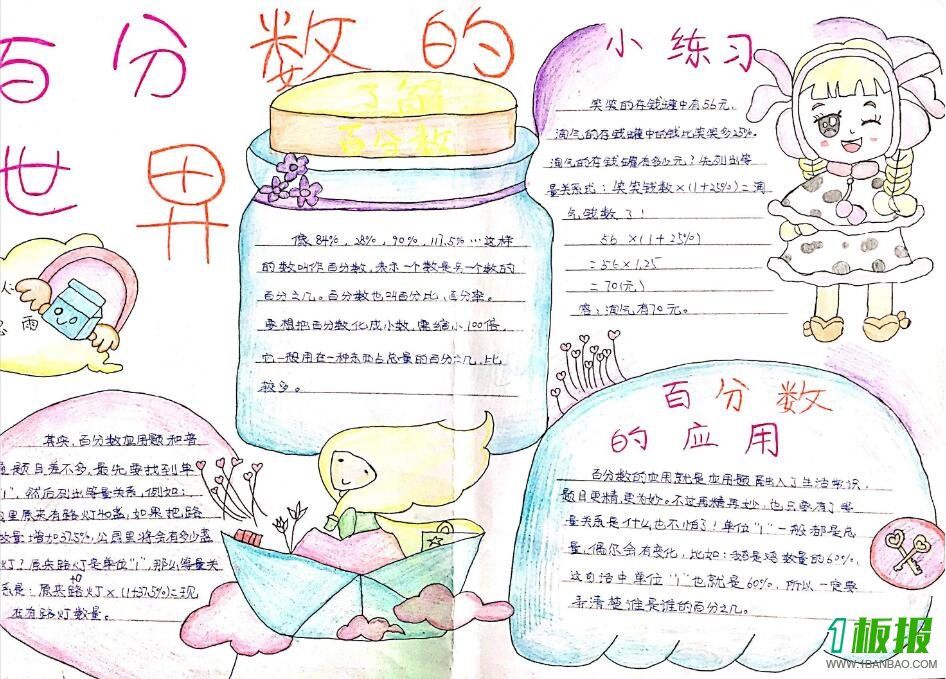 百分数的
世界
了简的
百分数
像84%，28%，90%，117.5%…这样
的数叫作百分数，表示一个数是另一个数的
百分之几。百分数也叫百分比，百分率。
要想把百分数化成小数，需缩小100倍，
它一般用在一种东西占总量的百分之几，比
较多。
小练习
笑笑的存钱罐中有56元，
淘气的存钱罐中的钱比笑笑多25%。
淘气的存钱罐有多少元？先列出等
量关系式：笑笑钱数×(1+25%)=淘
气钱数了！
56×(1+25%)
=56×1.25
=70(元)
答：淘气有70元。
雨
其实，百分数应用题和普
题目差不多，最先要找到单
"1"，然后列出等量关系，例如：
里原来有路灯40盏，如果把路
数量增加37.5%，公园里将会有多少盏
灯？原来路灯是单位"1"，那么等量关
系是：原来路灯×(1+37.5%)=现
在有路灯数量。
百分数
的应用
百分数的应用就是应用题属出入了生活常识，
题目更精更妙。不过再精再妙，也只要有了等
量关系是什么也不怕了！单位"1"一般都是总
量，偶尔会有变化，比如：鹅是鸡数量的60%，
这句话中单位"1"也就是60%，所以一定要
弄清楚谁是谁的百分之几。
1板报
WWW.1BANBAO.COM